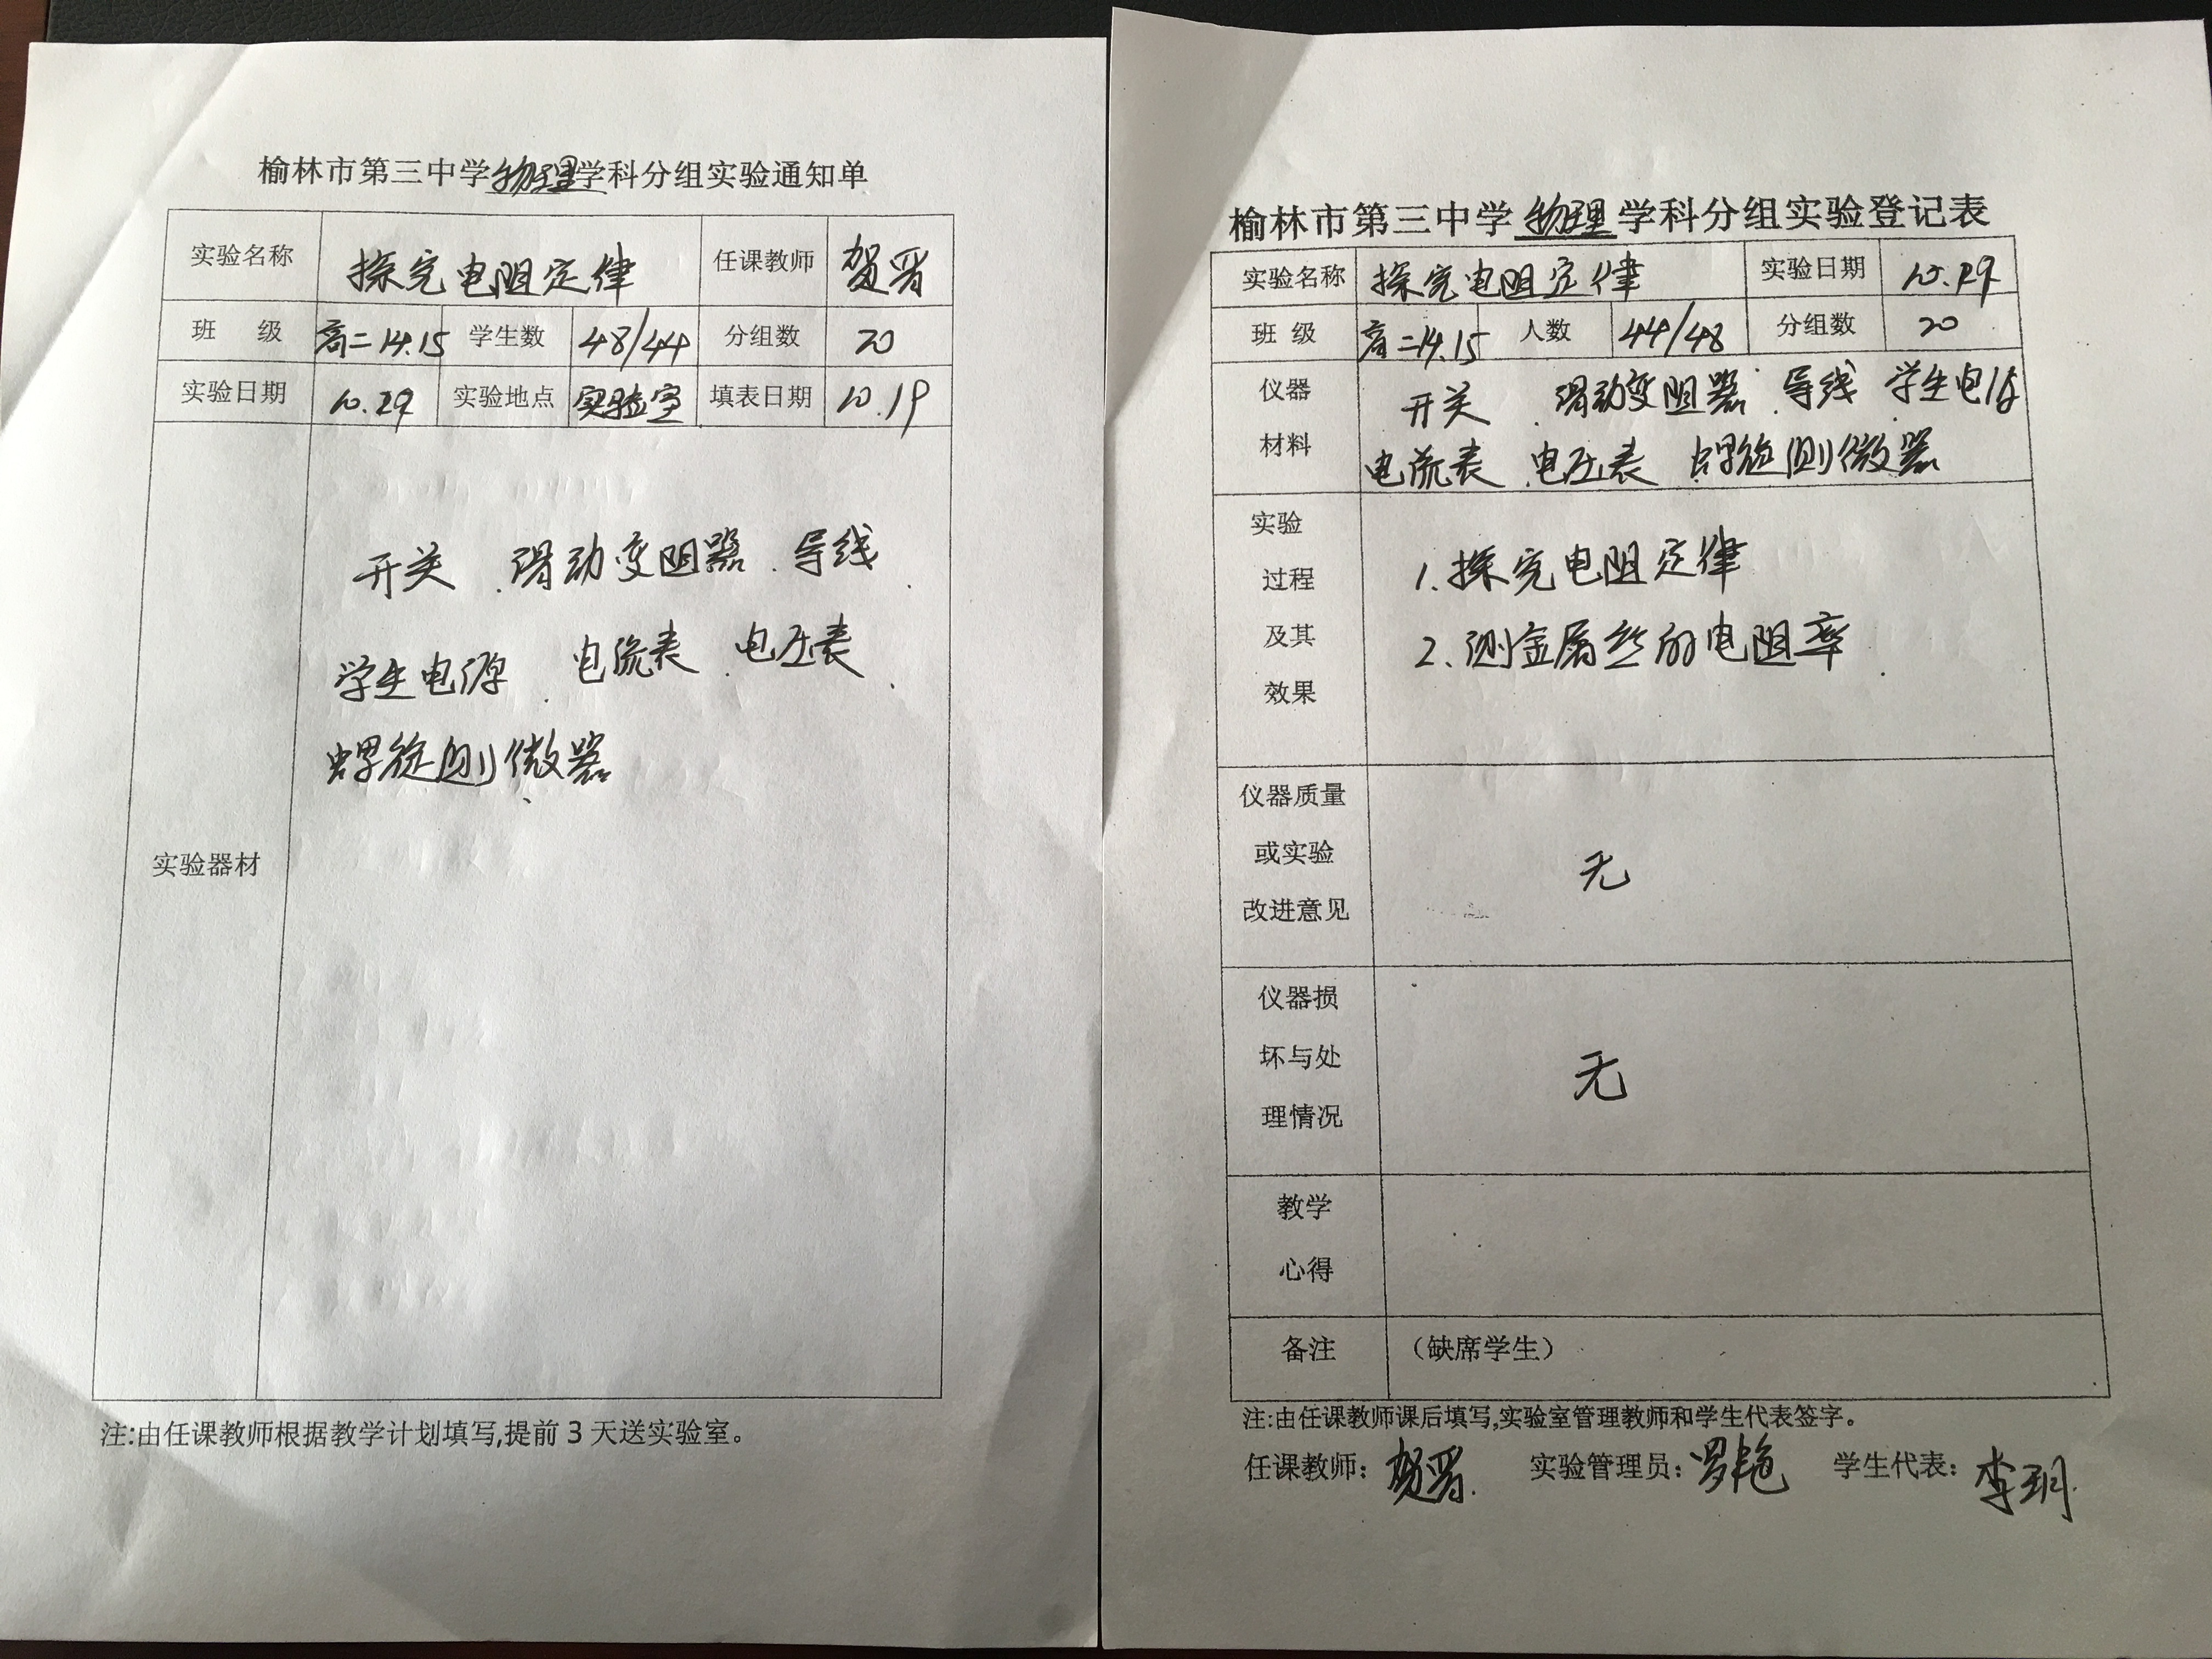 榆林市第三中学物理学科分组实验通知单
实验名称 探究电阻定律 任课教师 贺晋
班 级 高二14.15 学生数 48/44 分组数 20
实验日期 10.29 实验地点 实验室 填表日期 10.19
实验器材
开关.滑动变阻器.导线.
学生电源.电流表.电压表.
螺旋测微器、
注:由任课教师根据教学计划填写,提前3天送实验室。
榆林市第三中学物理学科分组实验登记表
实验名称 探究电阻定律 实验日期 10.29
班 级 高二14.15 人数 44/48 分组数 20
仪器
材料
开关.滑动变阻器.导线.学生电源
电流表.电压表.螺旋测微器
实验
过程
及其
效果
1.探究电阻定律
2、测金属丝的电阻率.
仪器质量
或实验
改进意见
无
仪器损
坏与处
理情况
无
教学
心得
备注 （缺席学生）
注:由任课教师课后填写,实验室管理教师和学生代表签字。
任课教师：贺晋. 实验管理员：罗艳 学生代表：李玥.